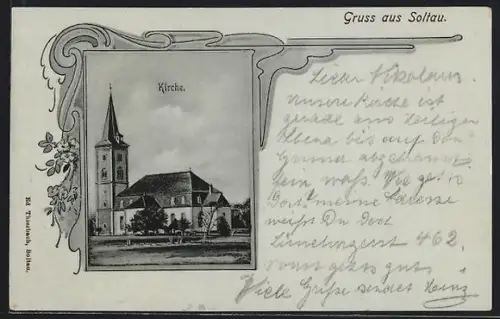 Gruss aus Soltau.
Kirche.
Lieber Nikolaus.
unsere Kirche ist
gerade am Heiligen
Abend bis auf den
Grund abgebrannt
fein was. Wie geht es
Dort meine Adresse
weißt Du doch
Lüneburgerst 462.
sonst geht's gut
Viele Grüße sendet Heinz
Ed Thiestsch, Soltau.